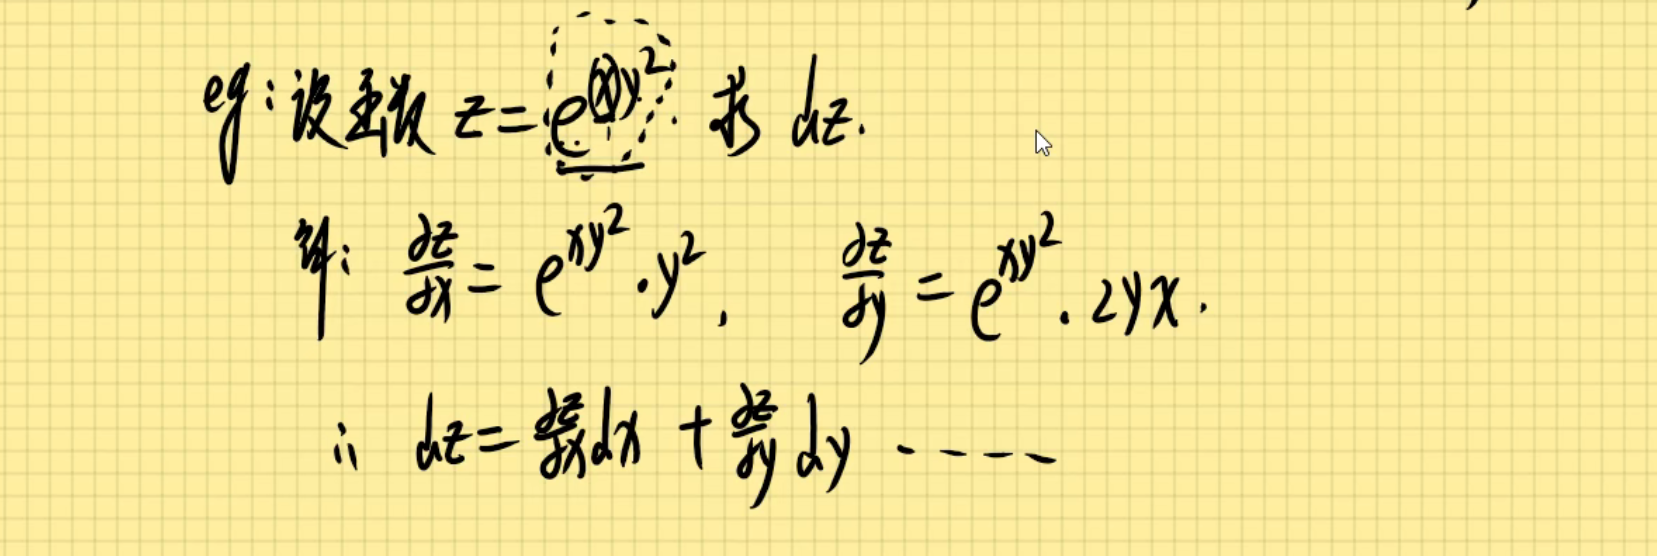 eg：设函数 z=e^{xy^2}. 求 dz.
解：∂z/∂x = e^{xy^2}·y^2, ∂z/∂y = e^{xy^2}·2yx.
∴ dz = ∂z/∂x dx + ∂z/∂y dy -----